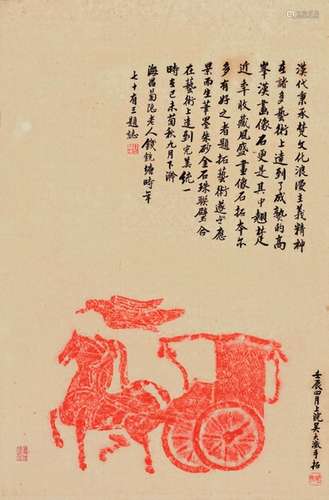 漢代秉承楚文化浪漫主義精神
在諸多藝術上達到了成熟的高
峯漢畫像石更是其中翹楚
近年收藏風盛畫像石拓本尔
多有好之者題拓藝術遂亦應
景而生筆墨朱砂金石珠聯璧合
在藝術上達到完美統一
時在己未菊秋九月下澣
海昌菊隐老人錢鏡塘時年
七十有三題誌
壬辰四月上浣吴大澂手拓